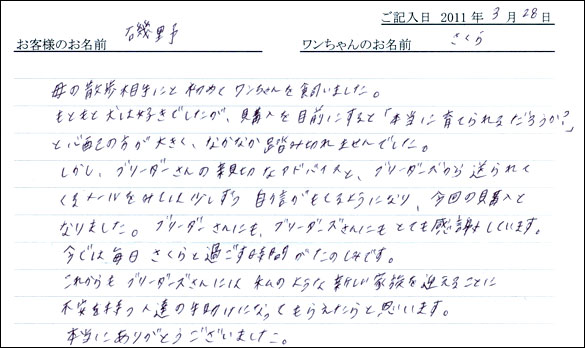 ご記入日 2011 年 3 月 28 日
お客様のお名前 磯野 ワンちゃんのお名前 さくら
母の散歩相手にと初めてワンちゃんを飼いました。
もともと犬は好きでしたが、購入を目前にすると「本当に育てられるだろうか?」
と心配の方が大きく、なかなか踏み切れませんでした。
しかし、ブリーダーさんの親切なアドバイスと、ブリーダーズから送られて
くるメールをみては少しずつ自信がもてるようになり、今回の購入と
なりました。ブリーダーさんにも、ブリーダーズさんにもとても感謝しています。
今では毎日さくらと過ごす時間がたのしみです。
これからもブリーダーズさんには私のような新しい家族を迎えることに
不安を持つ人達の手助けになってもらえたらと思います。
本当にありがとうございました。